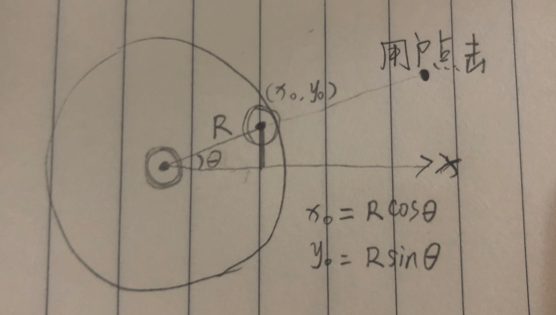 用户点击
(x₀, y₀)
R
θ
x
x₀ = R cosθ
y₀ = R sinθ